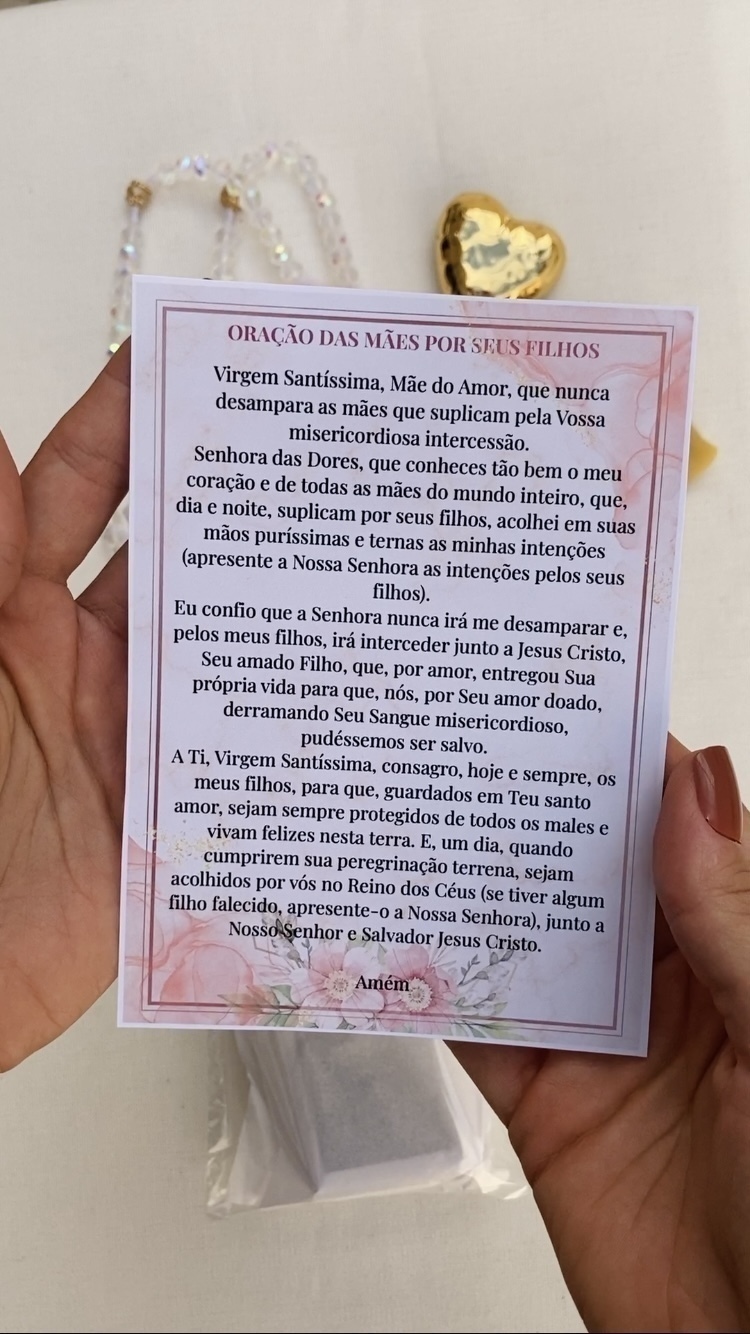 ORAÇÃO DAS MÃES POR SEUS FILHOS
Virgem Santíssima, Mãe do Amor, que nunca
desampara as mães que suplicam pela Vossa
misericordiosa intercessão.
Senhora das Dores, que conheces tão bem o meu
coração e de todas as mães do mundo inteiro, que,
dia e noite, suplicam por seus filhos, acolhei em suas
mãos puríssimas e ternas as minhas intenções
(apresente a Nossa Senhora as intenções pelos seus
filhos).
Eu confio que a Senhora nunca irá me desamparar e,
pelos meus filhos, irá interceder junto a Jesus Cristo,
Seu amado Filho, que, por amor, entregou Sua
própria vida para que, nós, por Seu amor doado,
derramando Seu Sangue misericordioso,
pudéssemos ser salvo.
A Ti, Virgem Santíssima, consagro, hoje e sempre, os
meus filhos, para que, guardados em Teu santo
amor, sejam sempre protegidos de todos os males e
vivam felizes nesta terra. E, um dia, quando
cumprirem sua peregrinação terrena, sejam
acolhidos por vós no Reino dos Céus (se tiver algum
filho falecido, apresente-o a Nossa Senhora), junto a
Nosso Senhor e Salvador Jesus Cristo.
Amém